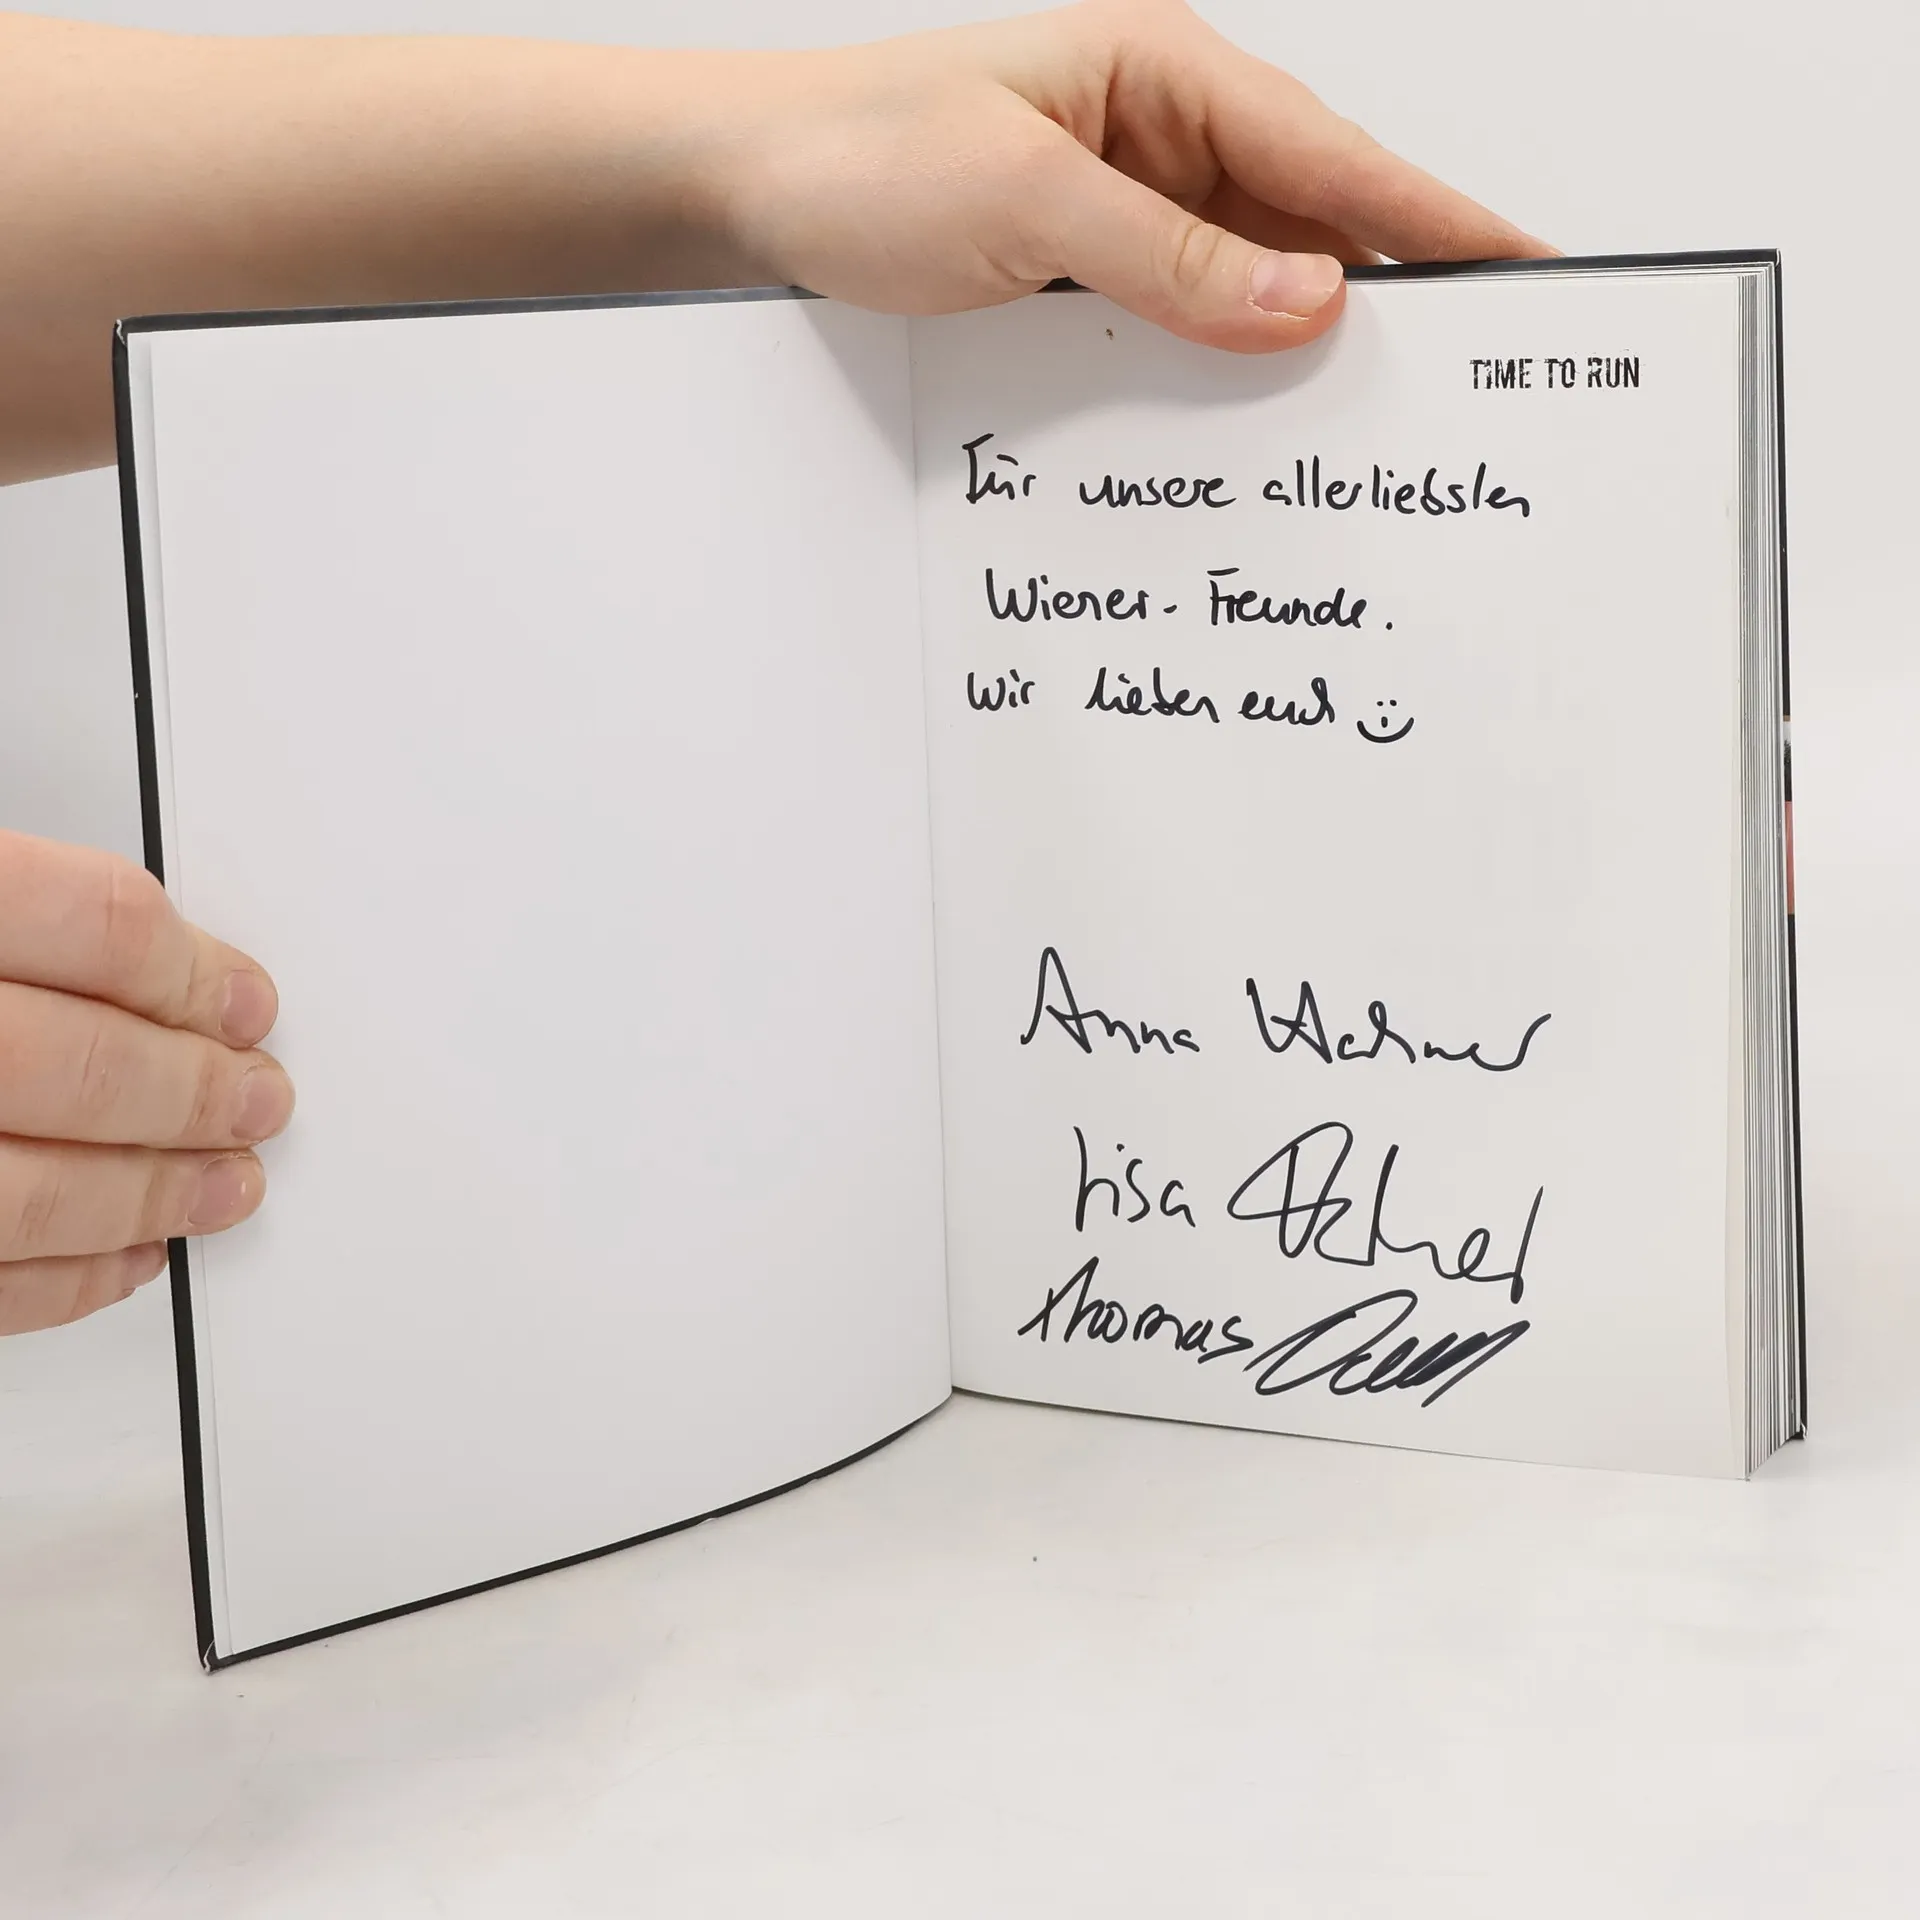 TIME TO RUN
Für unsere allerliebsten
Wiener-Freunde.
Wir lieben euch
Anna
Lisa
Thomas